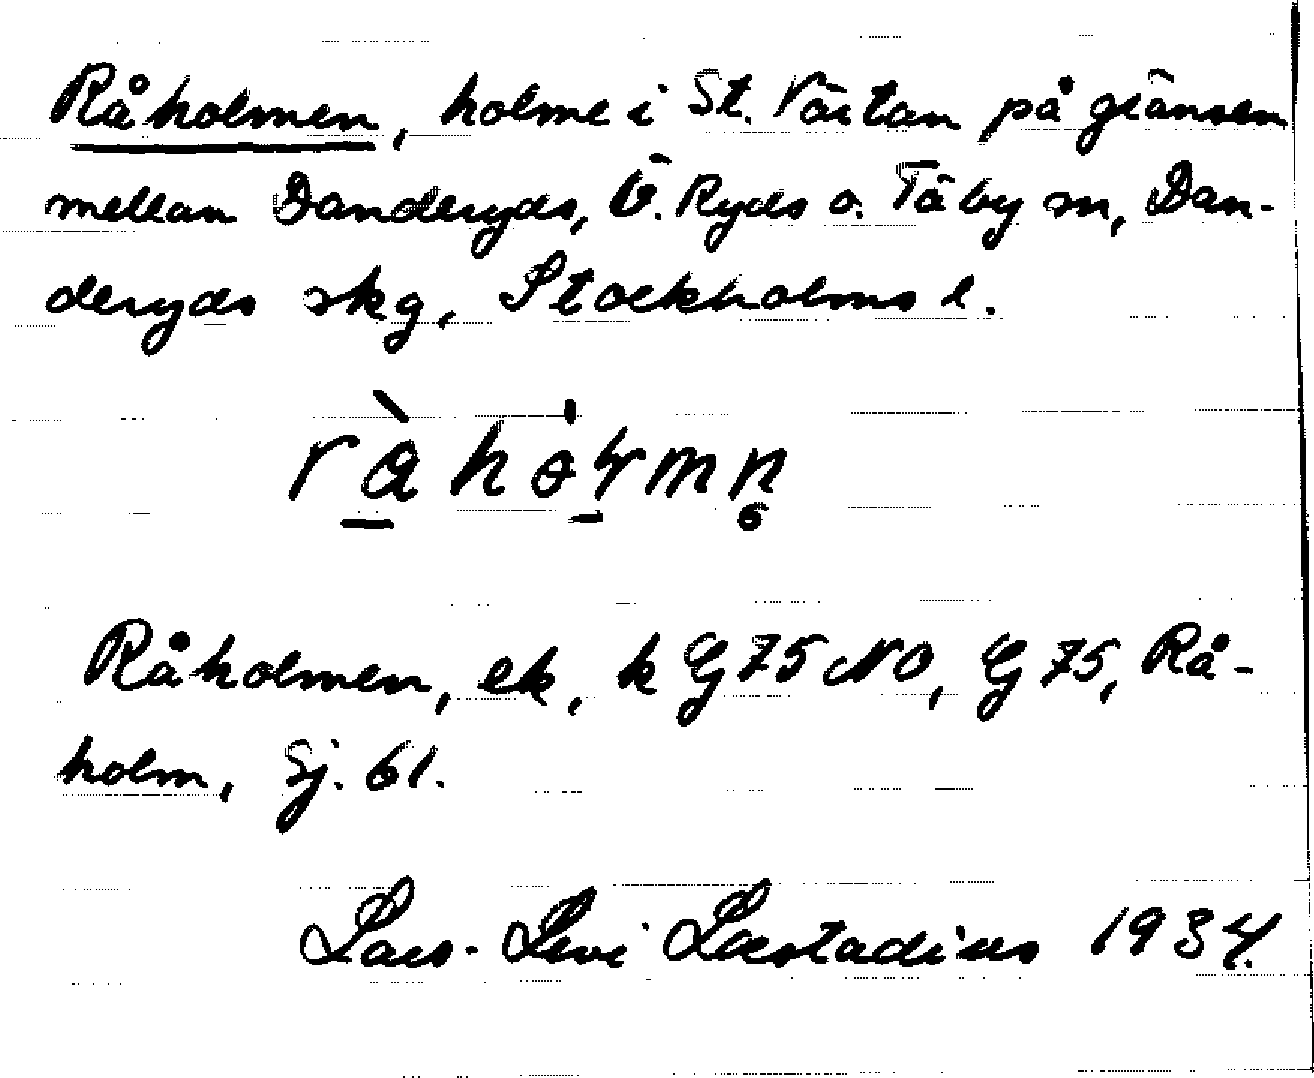 Råholmen, holme i St. Värtan på gränsen
mellan Danderyds, Ö. Ryds o. Täby sn, Dan-
deryds skg, Stockholms l.
Råholmen, ek, k G 75 NO, G 75, Rå-
holm, Sj. 61.
Lars-Levi Læstadius 1934.